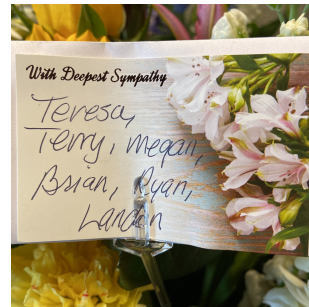 With Deepest Sympathy
Teresa,
Terry, Megan,
Brian, Ryan,
Landon